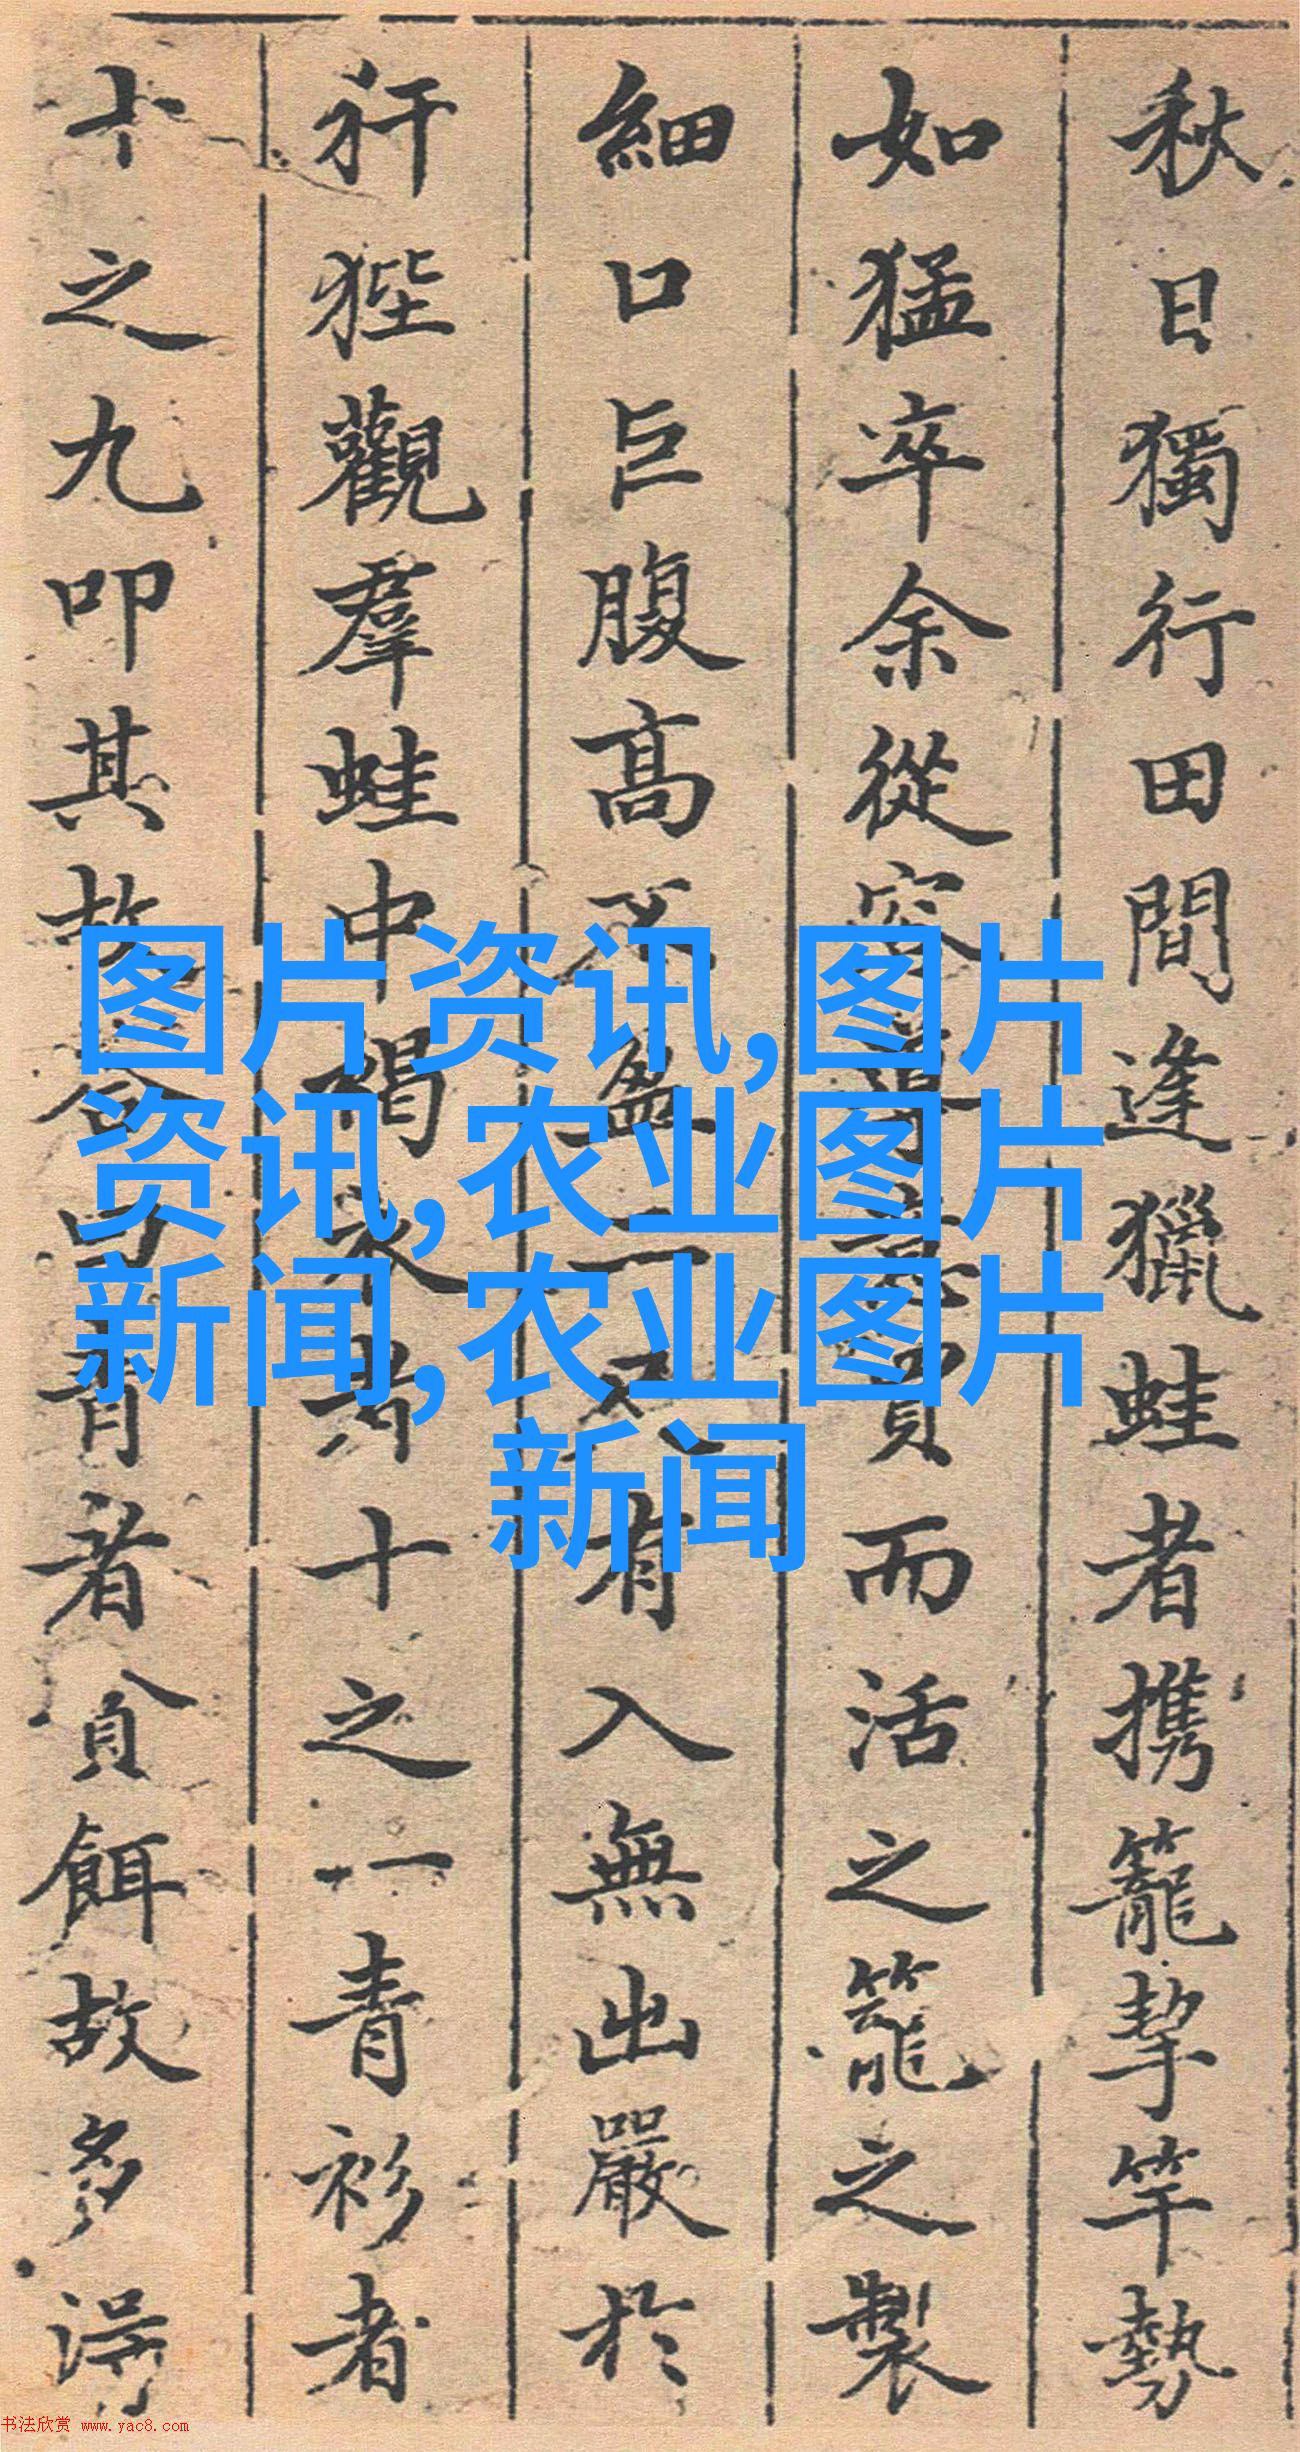 秋日獨行田間逢獵蛙者携籠挈竿勢
如猛卒余從容 而活之籠之製
細口巨腹高不盈二尺有入無出嚴於
犴狴觀羣蛙中褐衣者十之一青衫者
十之九叩其故答曰青者貪餌故多得
图片资讯,图片
资讯,农业图片
新闻,农业图片
新闻
书法欣赏 www.yac8.com